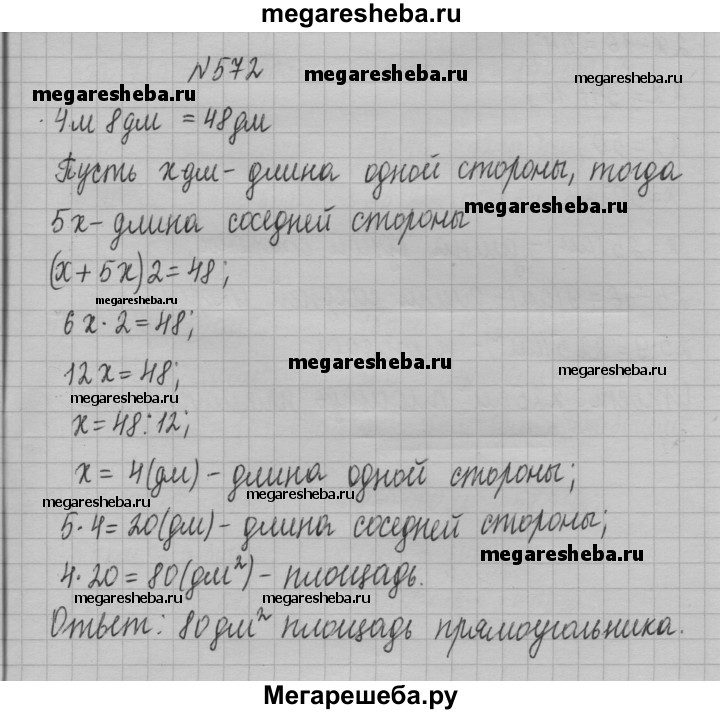 megaresheba.ru
№572
megaresheba.ru
megaresheba.ru
megaresheba.ru
4м 8дм = 48дм
Пусть х дм - длина одной стороны, тогда
5х - длина соседней стороны
megaresheba.ru
(х + 5х)2 = 48;
megaresheba.ru
6х · 2 = 48;
megaresheba.ru
megaresheba.ru
12х = 48;
megaresheba.ru
х = 48:12;
х = 4(дм) - длина одной стороны;
megaresheba.ru
megaresheba.ru
5 · 4 = 20(дм) - длина соседней стороны;
megaresheba.ru
4 · 20 = 80(дм²) - площадь.
megaresheba.ru
megaresheba.ru
megaresheba.ru
Ответ: 80дм² площадь прямоугольника.
Мегарешеба.ру